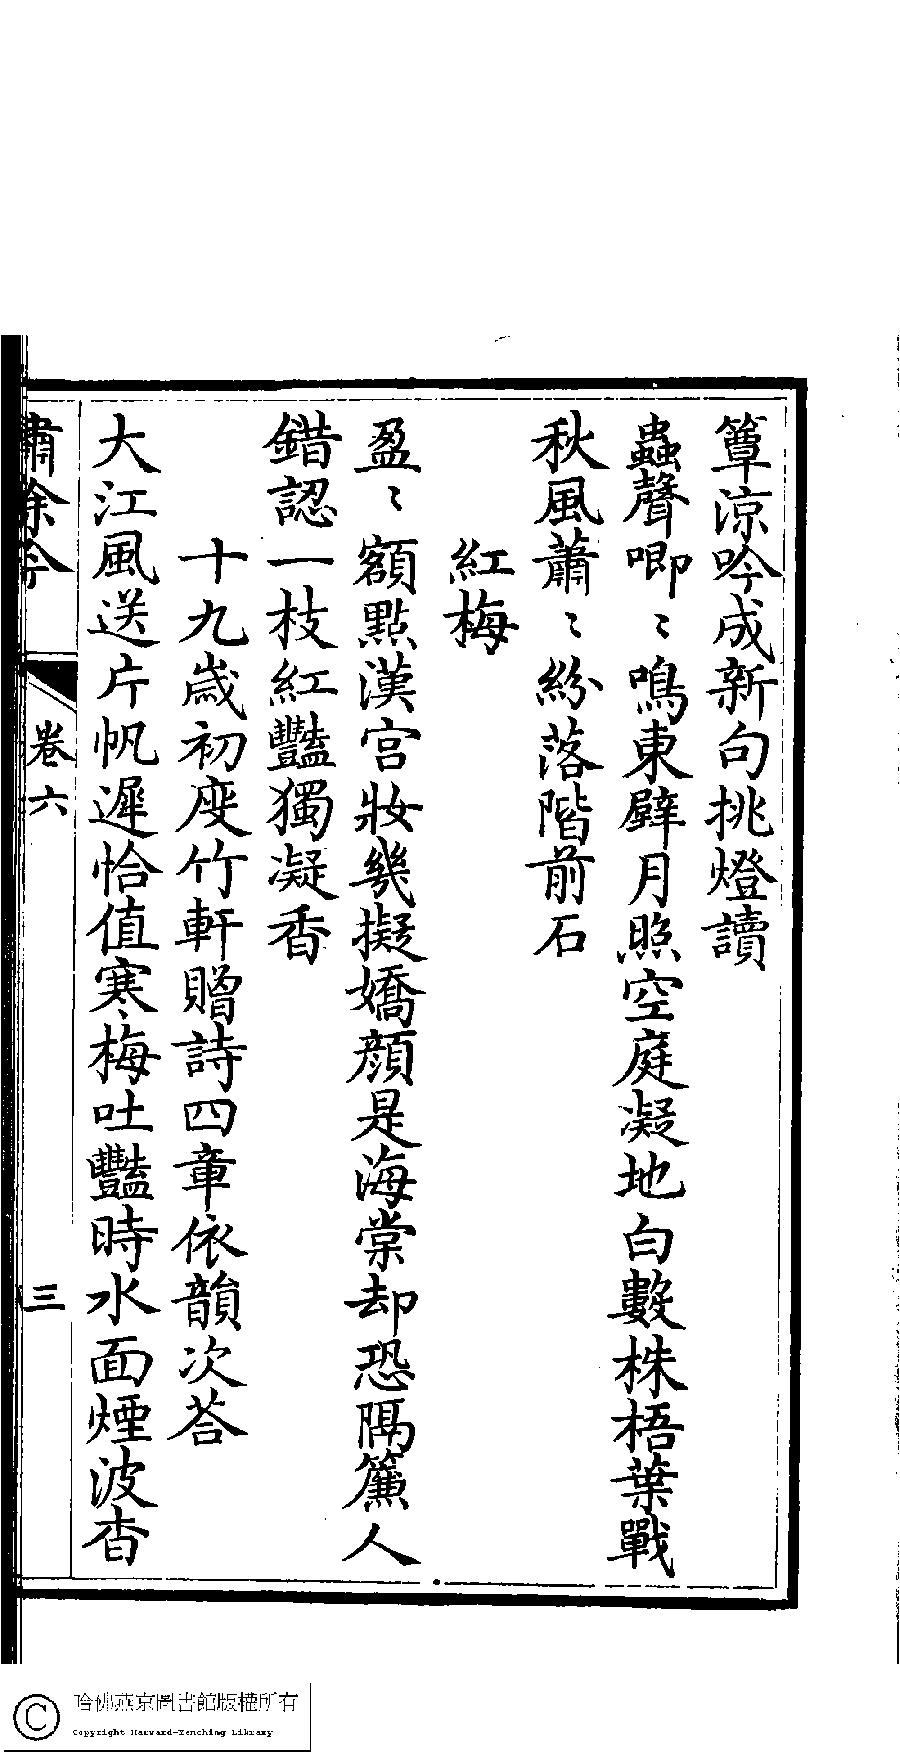 簟涼吟成新句挑燈讀
蟲聲唧〻鳴東壁月照空庭凝地白數株梧葉戰
秋風蕭〻紛落階前石
紅梅
盈〻額點漢宮妝幾擬嬌顏是海棠却恐隔簾人
錯認一枝紅豔獨凝香
十九歲初度竹軒贈詩四章依韻次荅
大江風送片帆遲恰值寒梅吐豔時水面煙波杳
繡餘吟
卷六
三
哈佛燕京圖書館版權所有
Copyright Harvard-Yenching Library